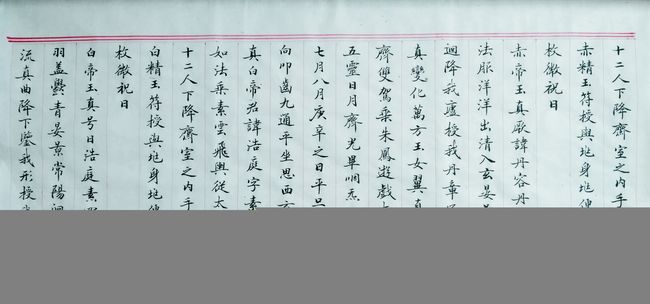 十二人下降齊室之内手
赤精玉符授與垗身垗便
枚微祝曰
赤帝玉真厥諱丹容丹
法服洋洋出清入玄晏
迴降我廬授我丹章
真變化萬方玉女翼真
齊雙駕乘朱鳳遊戲
五靈日月齊光畢咽炁
七月八月庚辛之日平旦
向叩齒九通平坐思西方
真白帝君諱浩庭字素
如法乘素雲飛輿從太
十二人下降齊室之内手
白精玉符授與垗身垗便
枚微祝曰
白帝玉真号曰浩庭素
羽蓋欝青晏景常陽迴
流真曲降下鑒我形授